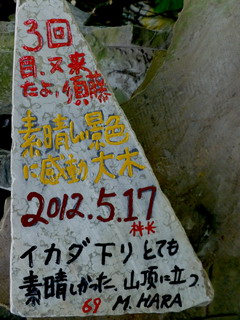 3回
目、又来
たよ、須藤
素晴しい景色
に感動 大木
2012.5.17
イカダ下りとても
素晴しかった、山頂に立つ
69 M.HARA